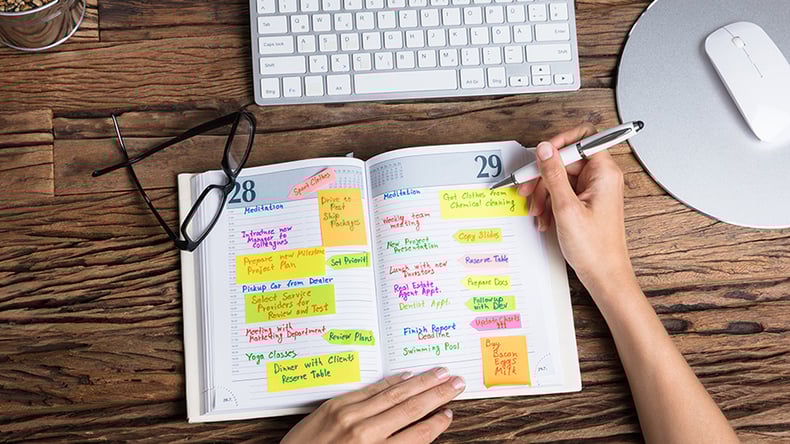 28
Sport Clothes
Meditation
Drive to
Post
Ship
Packages
Introduce new
Manager to
colleagues
Prepare new Milestone
Project Plan
Set Priority!
Pickup Car from Dealer
Select Service
Providers for
Review and Test
Meeting With
Marketing Department
Review Plans
Yoga Classes
Dinner with Clients
Reserve Table
29
Meditation
Get Clothes from
Chemical cleaning
Weekly team
meeting
Copy Slides
New Project
Presentation
Lunch with new
Investors
Reserve Table
Real Estate
Agent Appt.
Prepare Docs
Dentist Appt.
Followup
with Dev
Update Charts
!!!
Finish Report
Deadline
Swimming Pool
Buy
Bacon
Eggs
Milk